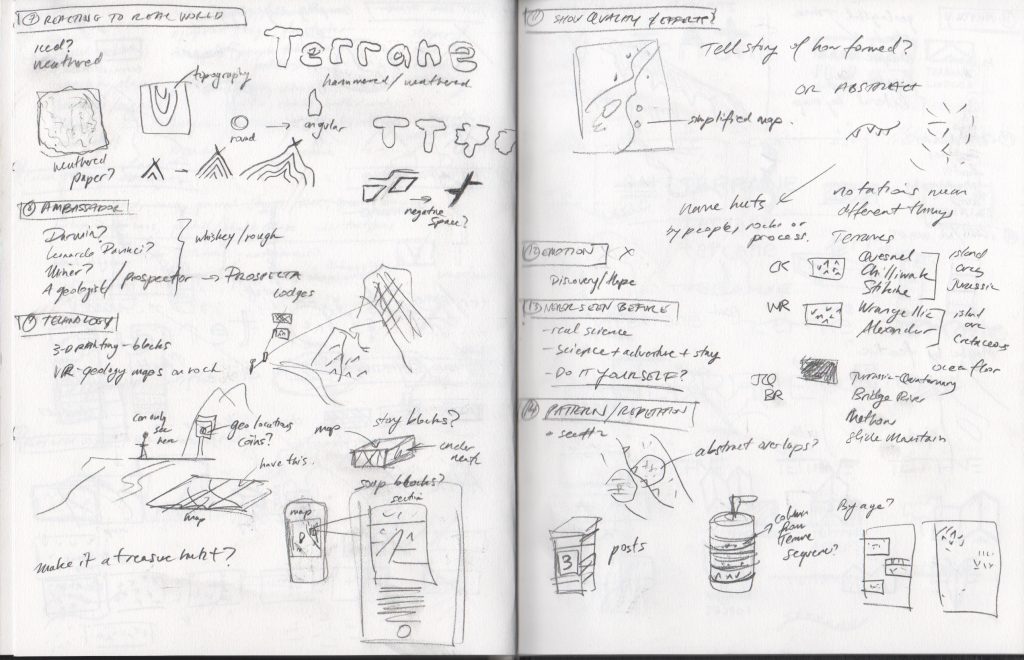 ⑦ REACTING TO REAL WORLD
iced?
weathered
Terrane
hammered/weathered
topography
round → angular
weathered
paper?
TT
→ negative
space?
⑧ AMBASSADOR
Darwin?
Leonardo Davinci?
Miner?
A geologist/prospector → PROSPECTA
whiskey/rough
Lodges
⑨ TECHNOLOGY
3-D printing - blocks
VR - geology maps on rock
can only
see
here
geolocating
coins?
have this.
map
stay blocks?
map
under
neath
soap blocks?
map
section
make it a treasure hunt?
⑪ SHOW QUALITY / EFFORTS?
Tell story of how formed?
OR ABSTRACT
simplified map.
name huts
by people, rocks or
process.
notations mean
different things
Terranes
CK
Quesnel
Chilliwack
Stikine
island
arcs
Jurassic
WR
Wrangellia
Alexander
island
arc
Cretaceous
ocean floor
JCQ
BR
Bridge River
Methow
Slide Mountain
⑫ EMOTION X
Discovery/Hope
⑬ NEVER SEEN BEFORE
- real science
- science + adventure + stay
- DO IT YOURSELF?
⑭ PATTERN/REPETITION
abstract overlaps?
3
posts
column
from
Terrane
sequence?
By age?